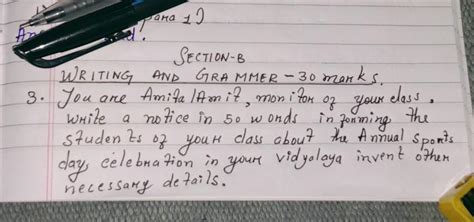 para 1)
SECTION-B
WRITING AND GRAMMER - 30 marks.
3. You are Amita/Amit, monitor of your class.
Write a notice in 50 words informing the
students of your class about the Annual sports
day celebration in your vidyalaya invent other
necessary details.